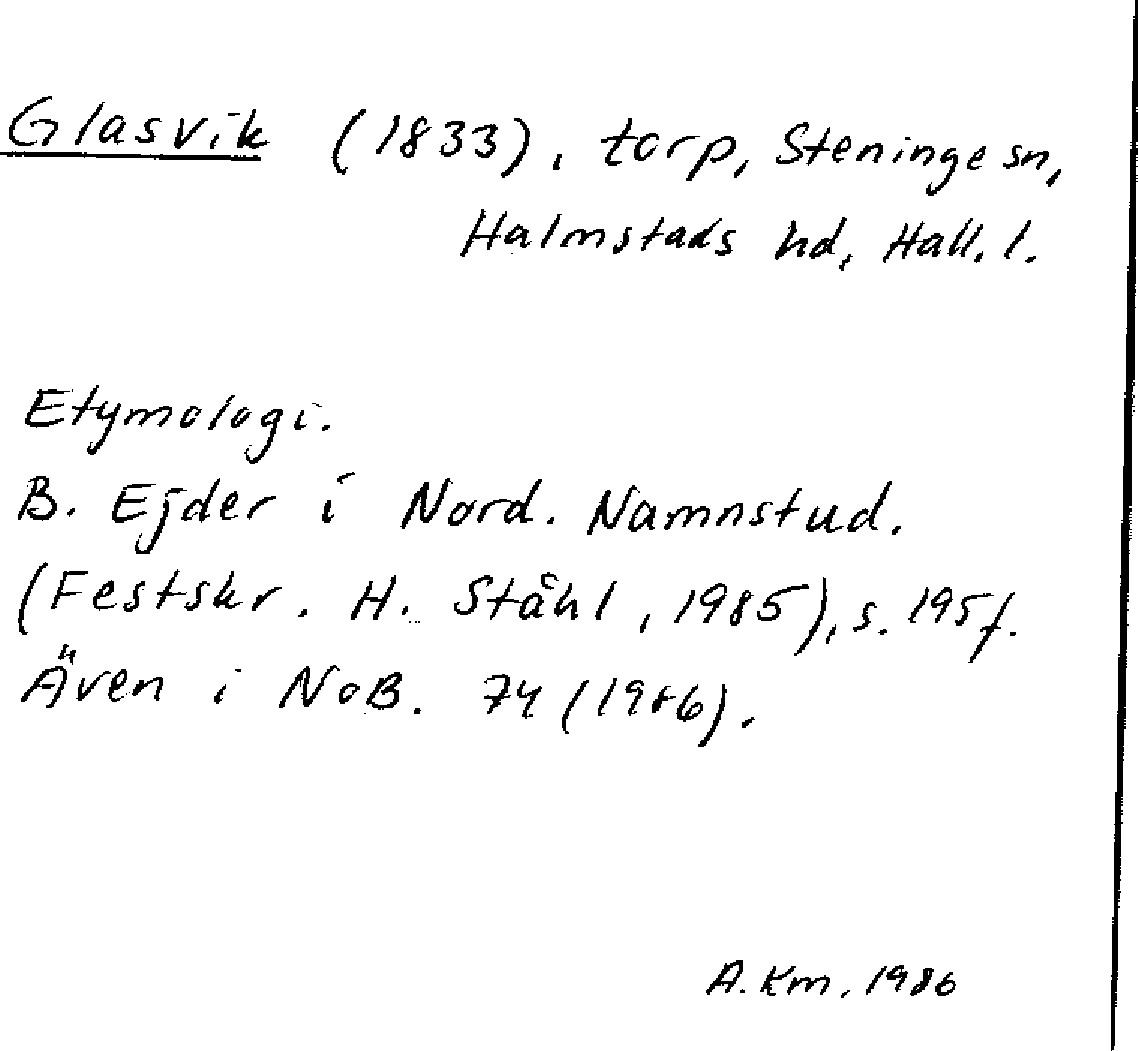 Glasvik (1833), torp, Steninge sn,
Halmstads hd, Hall. l.
Etymologi.
B. Ejder i Nord. Namnstud.
(Festskr. H. Ståhl, 1985), s. 195f.
Även i NoB. 74 (1986).
A. Km. 1986